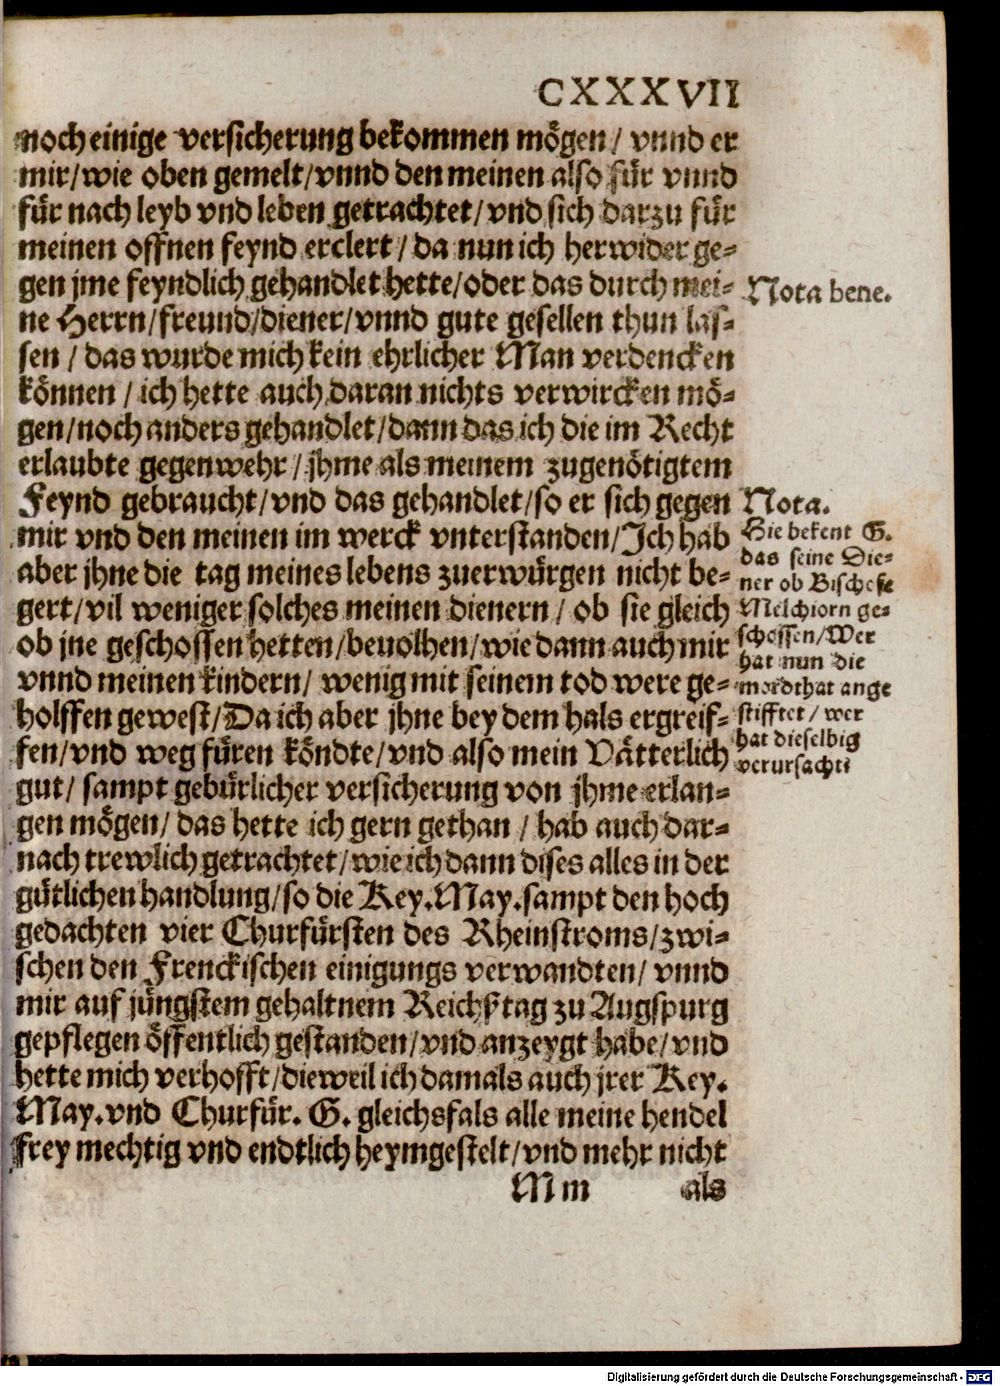 CXXXVII
noch einige versicherung bekommen mögen / vnnd er
mir / wie oben gemelt / vnnd den meinen also für vnnd
für nach leyb vnd leben getrachtet / vnd sich darzu für
meinen offnen feynd erclert / da nun ich herwider ge=
gen jme feyndlich gehandlet hette / oder das durch mei=
ne Herrn / freund / diener / vnnd gute gesellen thun las=
sen / das wurde mich kein ehrlicher Man verdencken
können / ich hette auch daran nichts verwircken mö=
gen / noch anders gehandlet / dann das ich die im Recht
erlaubte gegenwehr / jhme als meinem zugenötigtem
Feynd gebraucht / vnd das gehandlet / so er sich gegen
mir vnd den meinen im werck vnterstanden / Ich hab
aber jhne die tag meines lebens zuerwürgen nicht be=
gert / vil weniger solches meinen dienern / ob sie gleich
ob jne geschossen hetten / beuolhen / wie dann auch mir
vnnd meinen kindern / wenig mit seinem tod were ge=
holffen gewest / Da ich aber jhne bey dem hals ergreif=
fen / vnd weg füren köndte / vnd also mein Vätterlich
gut / sampt gebürlicher versicherung von jhme erlan=
gen mögen / das hette ich gern gethan / hab auch dar=
nach trewlich getrachtet / wie ich dann dises alles in der
gütlichen handlung / so die Key. May. sampt den hoch
gedachten vier Churfürsten des Rheinstroms / zwi=
schen den Frenckischen einigungs verwandten / vnnd
mir auf jüngstem gehaltnem Reichßtag zu Augspurg
gepflegen öffentlich gestanden / vnd anzeygt habe / vnd
hette mich verhofft / dieweil ich damals auch jrer Key.
May. vnd Churfür. G. gleichsfals alle meine hendel
frey mechtig vnd endtlich heymgestelt / vnd mehr nicht
Mm als
Nota bene.
Nota.
Hie bekent G.
das seine Die=
ner ob Bischofe
Melchiorn ge=
schossen / Wer
hat nun die
mordthat ange
stifftet / wer
hat dieselbig
verursacht?
Digitalisierung gefördert durch die Deutsche Forschungsgemeinschaft - DFG